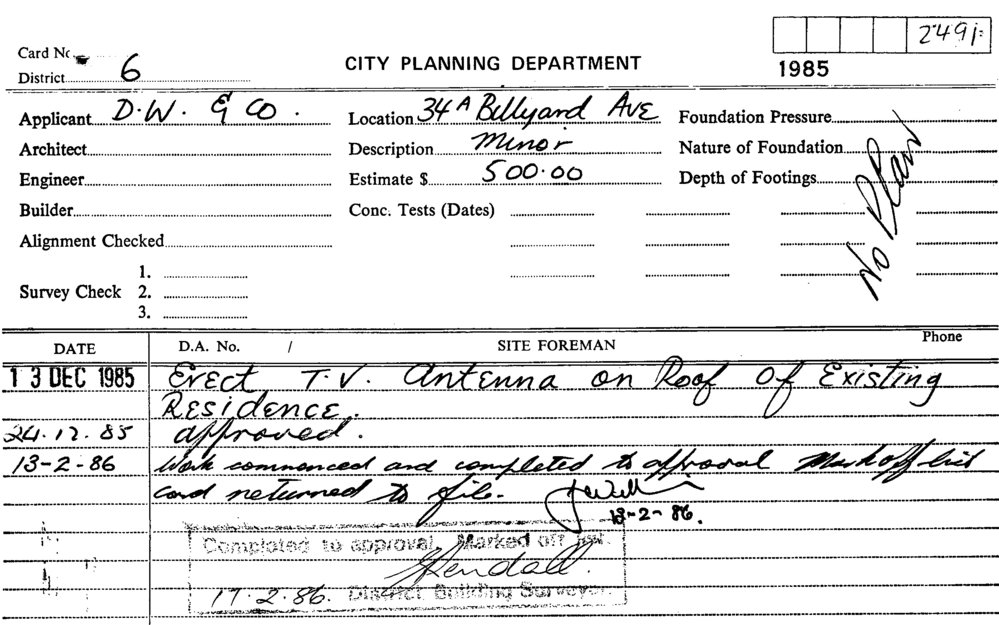 2491/-
Card No.
District 6
CITY PLANNING DEPARTMENT
1985
Applicant D.W. & Co.
Location 34A Billyard Ave
Foundation Pressure
Architect
Description Minor
Nature of Foundation
Engineer
Estimate $ 500.00
Depth of Footings
No Plan
Builder
Conc. Tests (Dates)
Alignment Checked
1.
Survey Check 2.
3.
DATE D.A. No. / SITE FOREMAN Phone
13 DEC 1985 Erect T.V. Antenna on Roof of Existing
Residence.
24.12.85 approved.
13-2-86 Work commenced and completed to approval Mark off list
card returned to file.
13-2-86.
Completed to approval. Marked off list.
Kendall.
17.2.86. District Building Surveyor.